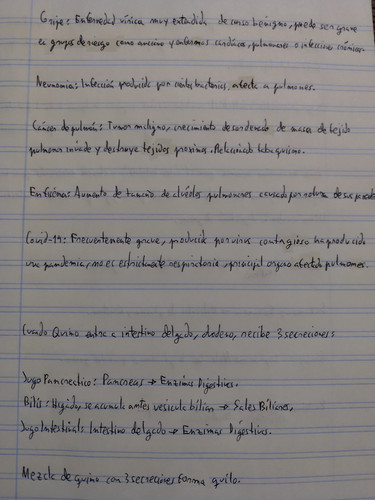 Gripe: Enfermedad vírica muy extendida de curso benigno, puede ser grave
en grupos de riesgo como anciano y enfermos cardiacos, pulmonares o infecciones crónicas.
Neumonía: Infección producida por ciertas bacterias, afecta a pulmones.
Cáncer de pulmón: Tumor maligno, crecimiento desordenado de masas de tejido
pulmonar invade y destruye tejidos proximos. Relacionado tabaquismo.
Enfisema: Aumento de tamaño de alvéolos pulmonares causado por rotura de sus paredes
Covid-19: Frecuentemente grave, producida por virus contagioso ha producido
una pandemia, no es estrictamente respiratoria, principal organo afectado pulmones.
Cuando Quimo entra a intestino delgado, duodeno, recibe 3 secreciones:
Jugo Pancreatico: Pancreas → Enzimas Digestivas.
Bilis: Higado, se acumula antes vesicula biliar → Sales Biliares.
Jugo Intestinal: Intestino delgado → Enzimas Digestivas.
Mezcla de quimo con 3 secreciones forma quilo.